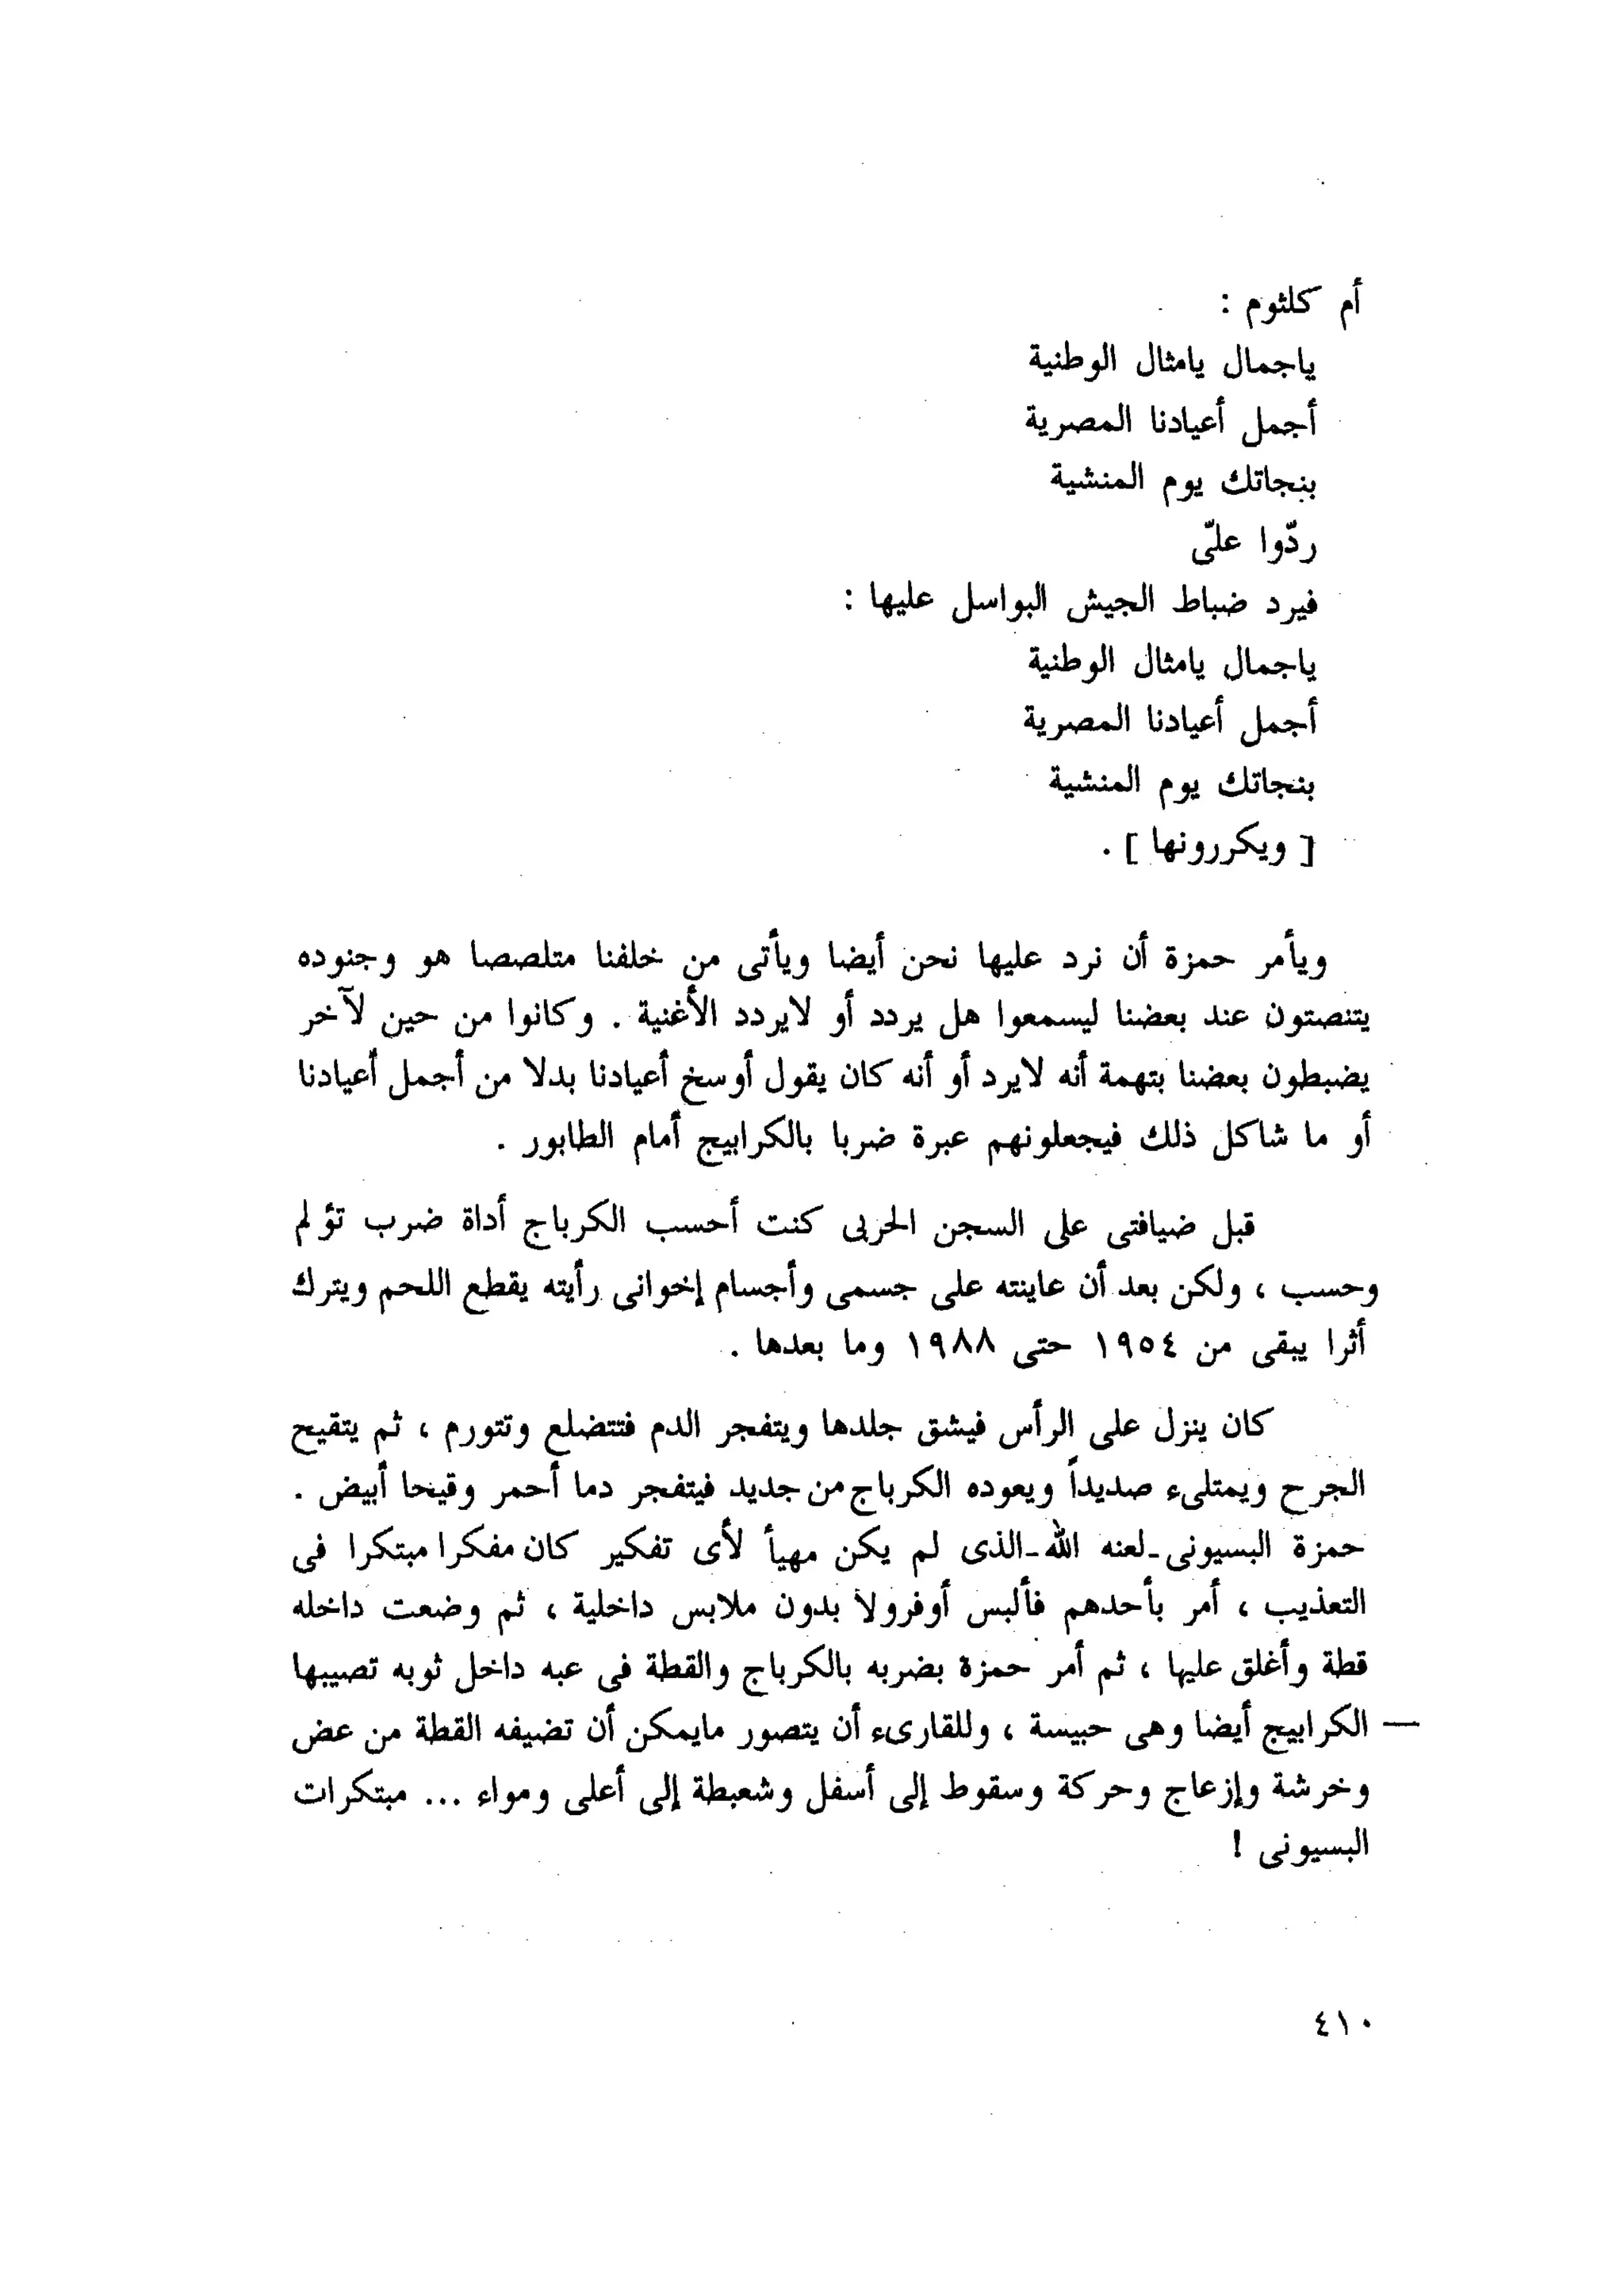 أم كلثوم :
ياجمال يامثال الوطنية
أجمل أعيادنا المصرية
بنجاتك يوم المنشية
ردّوا علىّ
فيرد ضباط الجيش البواسل عليها :
ياجمال يامثال الوطنية
أجمل أعيادنا المصرية
بنجاتك يوم المنشية
[ ويكررونها ] .
ويأمر حمزة أن نرد عليها نحن أيضا ويأتى من خلفنا متلصصا هو وجنوده
يتنصتون عند بعضنا ليسمعوا هل يردد أو لايردد الأغنية . وكانوا من حين لآخر
يضبطون بعضنا بتهمة أنه لايرد أو أنه كان يقول أوسخ أعيادنا بدلا من أجمل أعيادنا
أو ما شاكل ذلك فيجعلونهم عبرة ضربا بالكرابيج أمام الطابور .
قبل ضيافتى على السجن الحربى كنت أحسب الكرباج أداة ضرب تؤلم
وحسب ، ولكن بعد أن عاينته على جسمى وأجسام إخوانى رأيته يقطع اللحم ويترك
أثرا يبقى من ١٩٥٤ حتى ١٩٨٨ وما بعدها .
كان ينزل على الرأس فيشق جلدها ويتفجر الدم فتتضلع وتتورم ، ثم يتقيح
الجرح ويمتلىء صديداً ويعوده الكرباج من جديد فيتفجر دما أحمر وقيحا أبيض .
حمزة البسيونى-لعنه الله-الذى لم يكن مهيأ لأى تفكير كان مفكرا مبتكرا فى
التعذيب ، أمر بأحدهم فألبس أوفرولا بدون ملابس داخلية ، ثم وضعت داخله
قطة وأغلق عليها ، ثم أمر حمزة بضربه بالكرباج والقطة فى عبه داخل ثوبه تصيبها
— الكرابيج أيضا وهى حبيسة ، وللقارىء أن يتصور مايمكن أن تضيفه القطة من عض
وخرشة وإزعاج وحركة وسقوط إلى أسفل وشعبطة إلى أعلى ومواء ... مبتكرات
البسيونى !
٤١٠